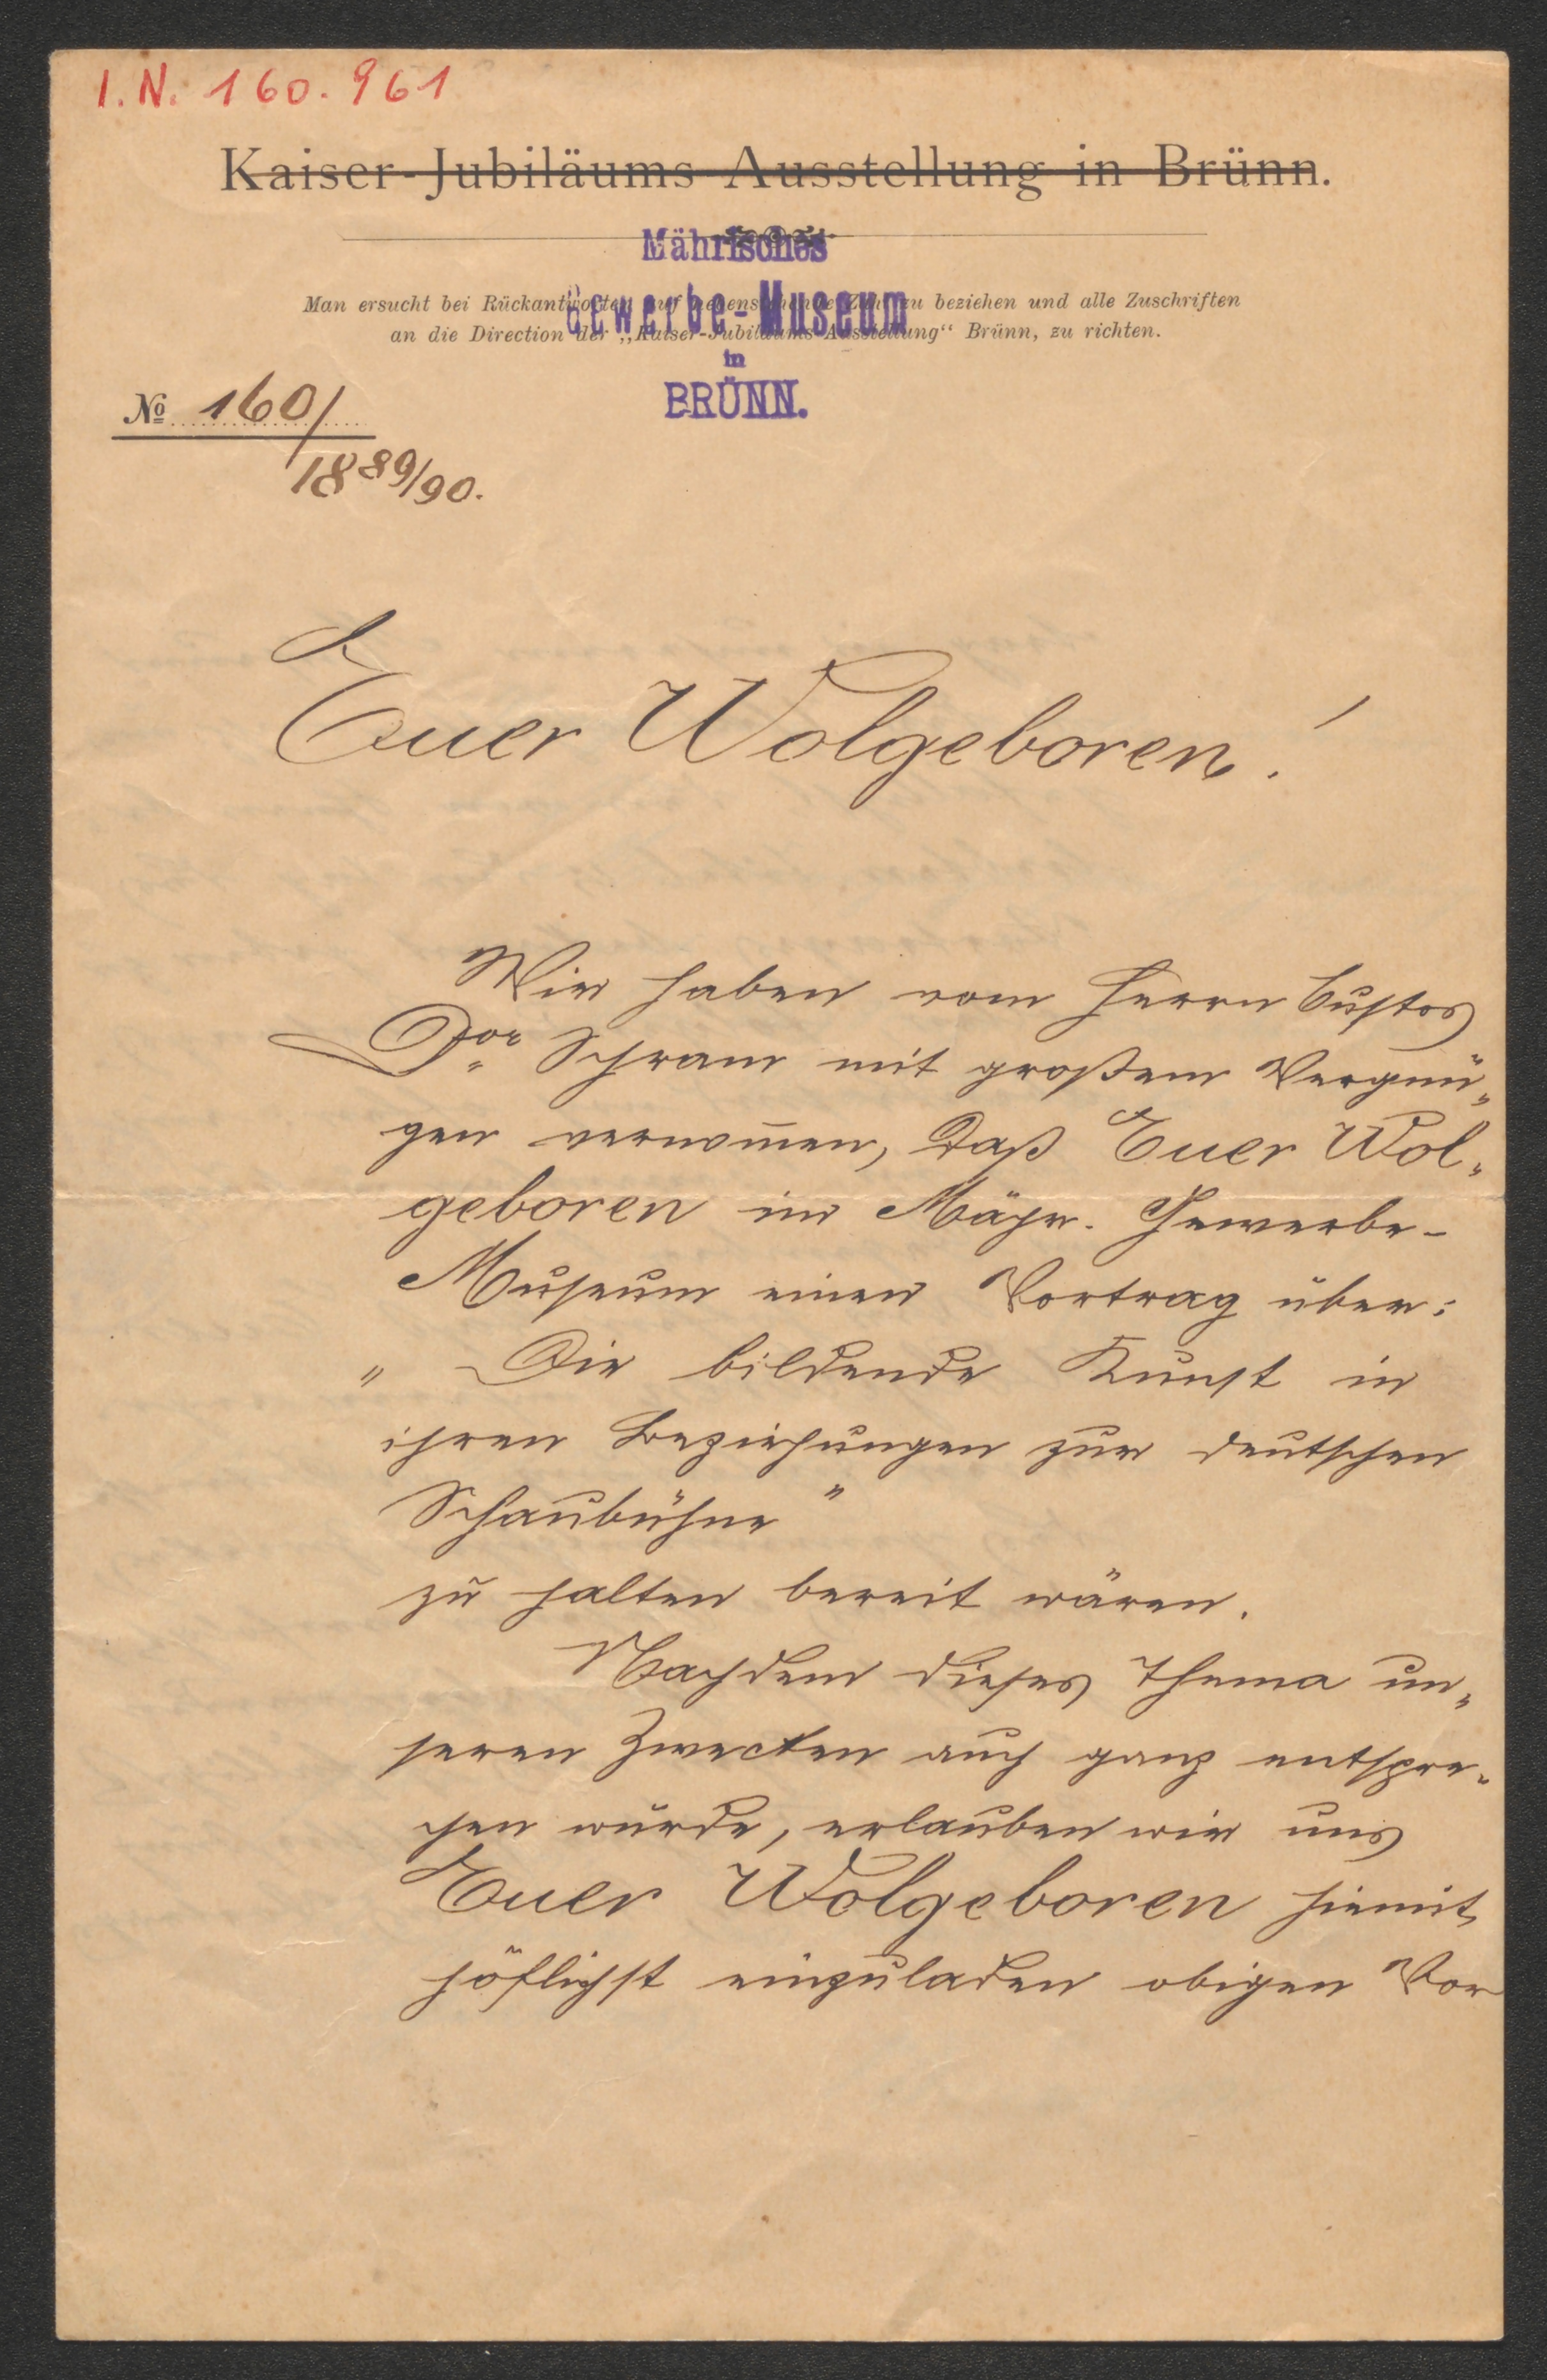 I. N. 160. 961
Kaiser-Jubiläums-Ausstellung in Brünn.
Mährisches
Man ersucht bei Rückantworten auf nebenstehende Zahl zu beziehen und alle Zuschriften
Gewerbe-Museum
an die Direction der „Kaiser-Jubiläums-Ausstellung“ Brünn, zu richten.
in
BRÜNN.
№ 160/
1889/90.
Euer Wolgeboren!
Wir haben vom Herrn Custos
Dor. Schram mit großem Vergnü„
gen vernom̄en, daß Euer Wol„
geboren im Mähr. Gewerbe-
Museum einen Vortrag über:
" Die bildende Kunst in
ihren Beziehungen zur deutschen
Schaubühne "
zu halten bereit wären.
Nachdem dieses Thema un„
seren Zwecken auch ganz entspre„
chen würde, erlauben wir uns
Euer Wolgeboren hiemit
höflichst einzuladen obigen Vor